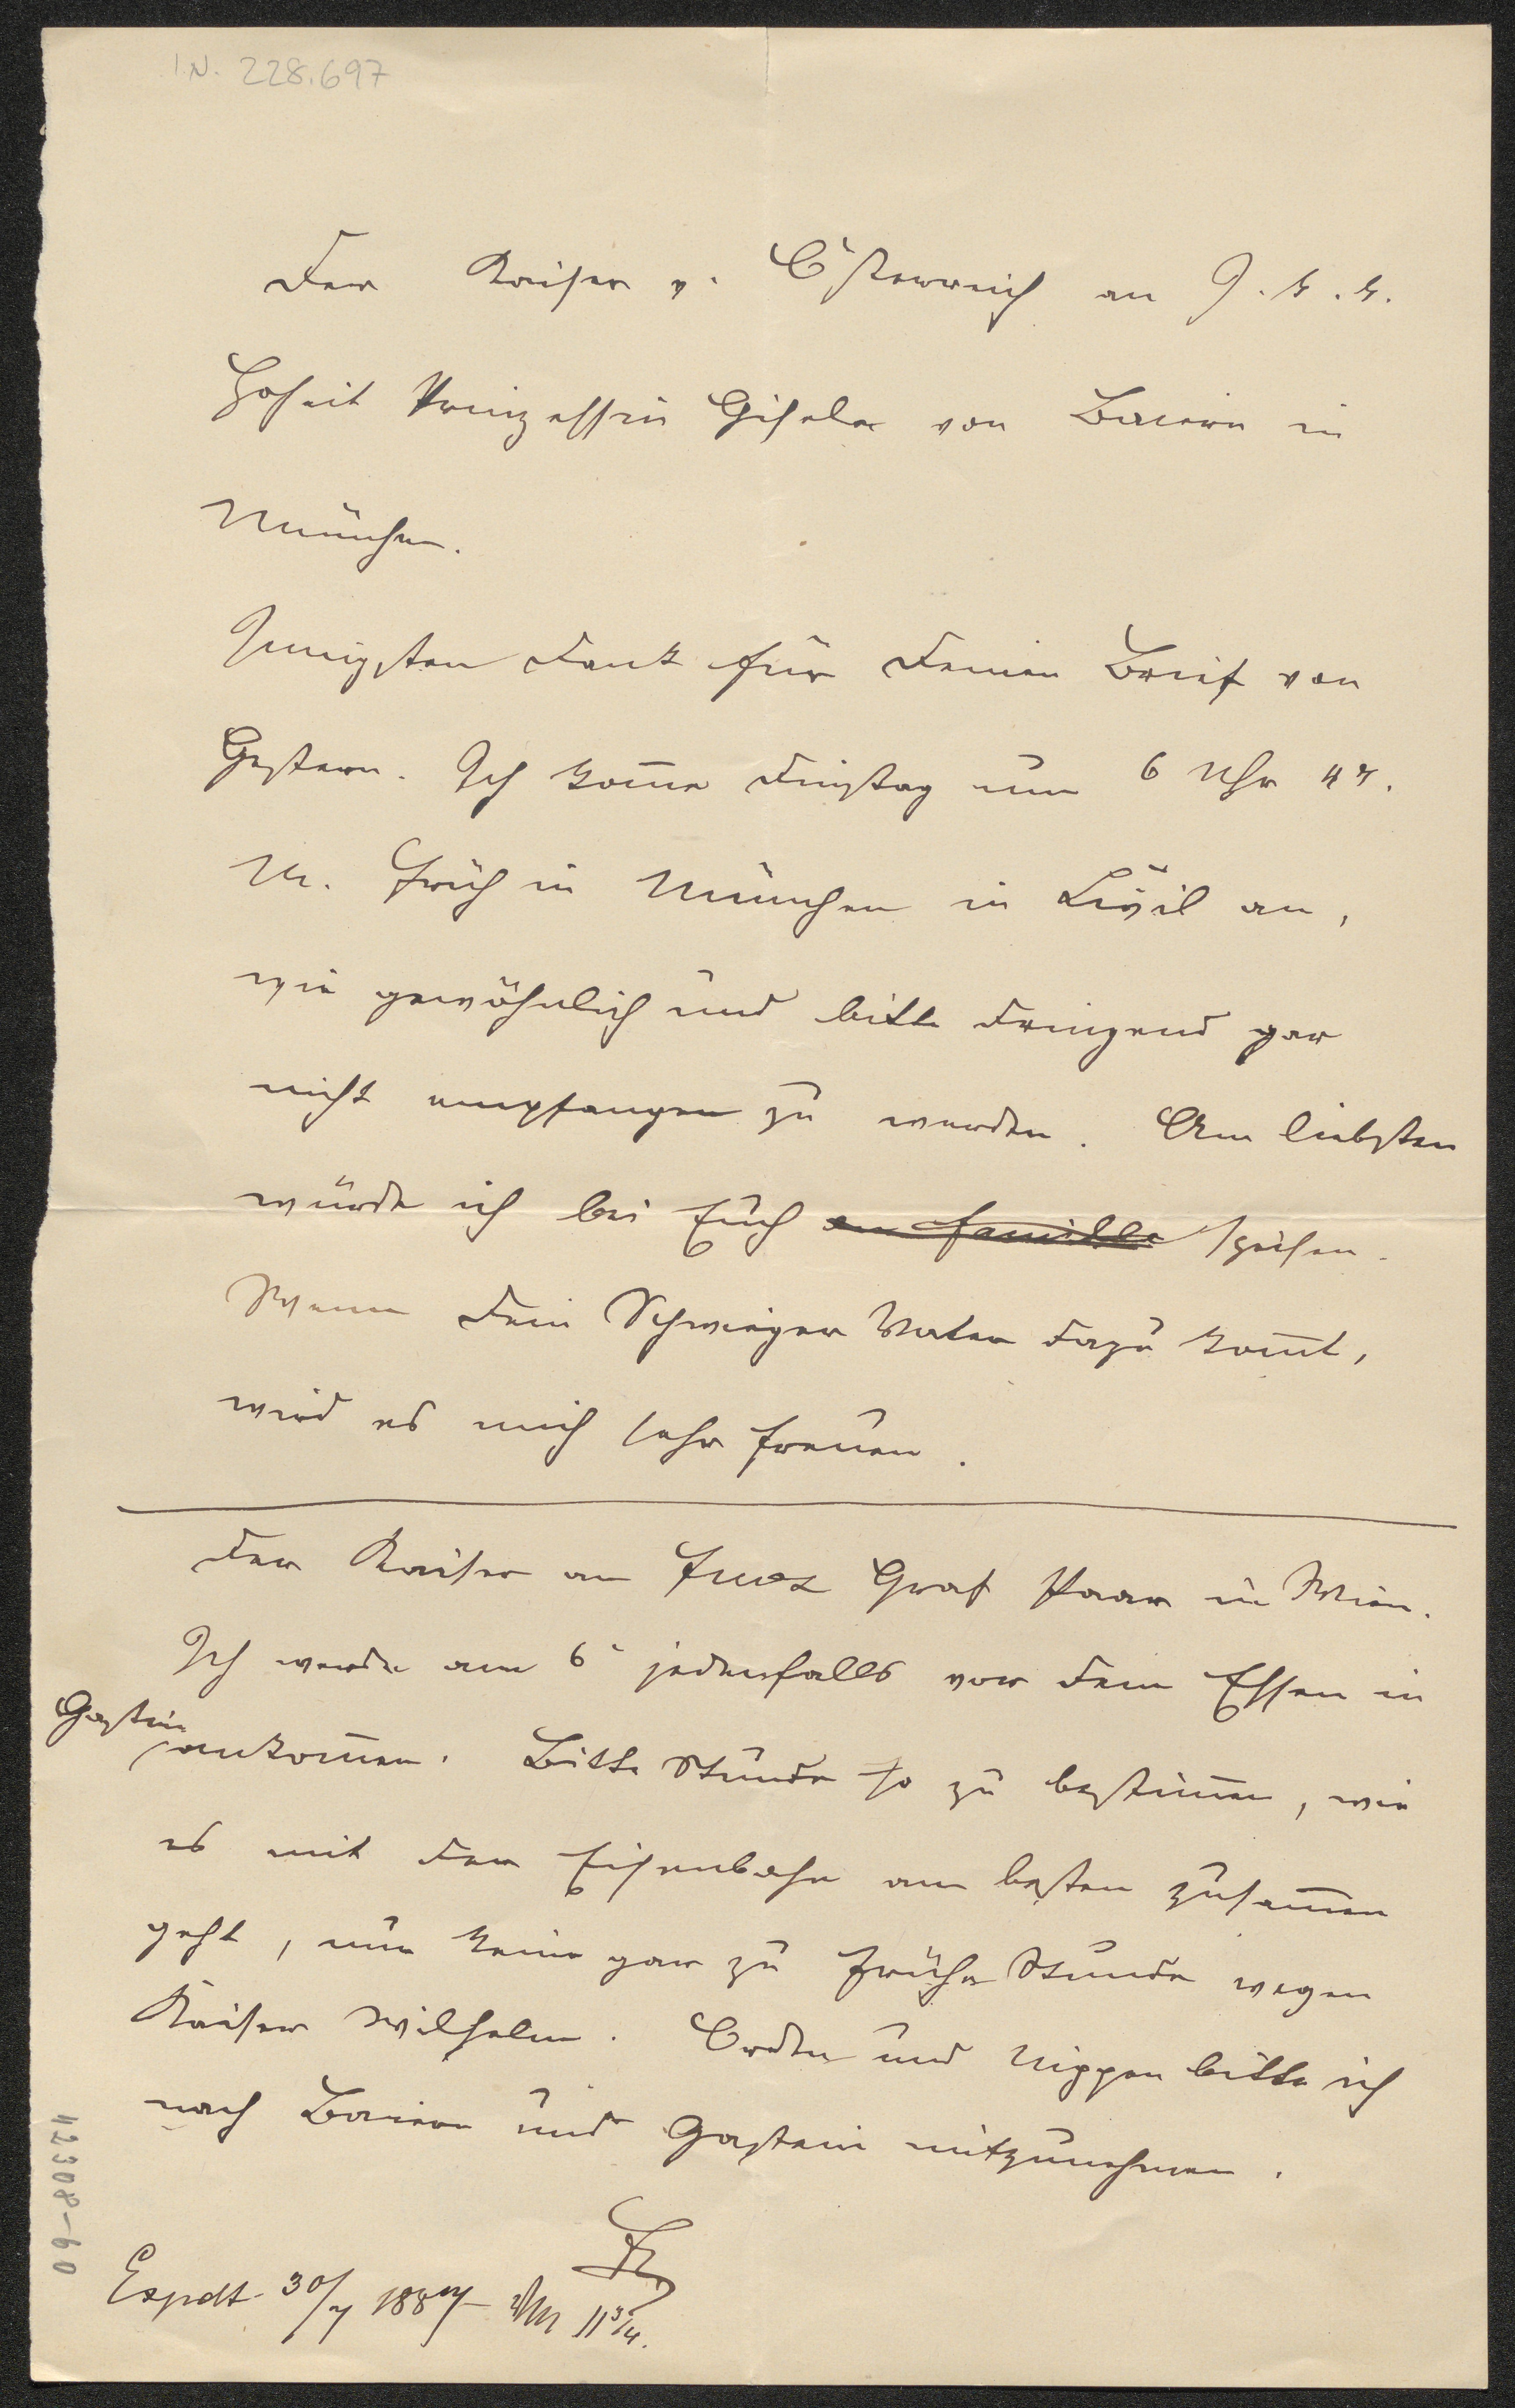 I.N. 228.697
Der Kaiser v. Österreich an I. k. k.
Hoheit Prinzessin Gisela von Baiern in
München.
Innigsten Dank für Deinen Brief von
Gestern. Ich kom̅e Dinstag um 6 Uhr 47.
M. Früh in München in Civil an,
wie gewöhnlich und bitte dringend gar
nicht empfangen zu werden. Am liebsten
würde ich bei Euch en famille speisen.
Wenn Dein Schwieger Vater dazu kom̅t,
wird es mich sehr freuen.
Der Kaiser an Graf Paar in Wien.
Ich werde am 6. jedenfalls vor dem Essen in
Gastein
ankom̅en. Bitte Stunde so zu bestim̅en, wie
es mit der Eisenbahn am besten zusam̅en
geht, nur keine gar zu frühe Stunde wegen
Kaiser Wilhelm. Orden und Nippen bitte ich
nach Baiern und Gastein mitzunehmen.
Expdt 30/7 1884 11 3/4.
42308-60